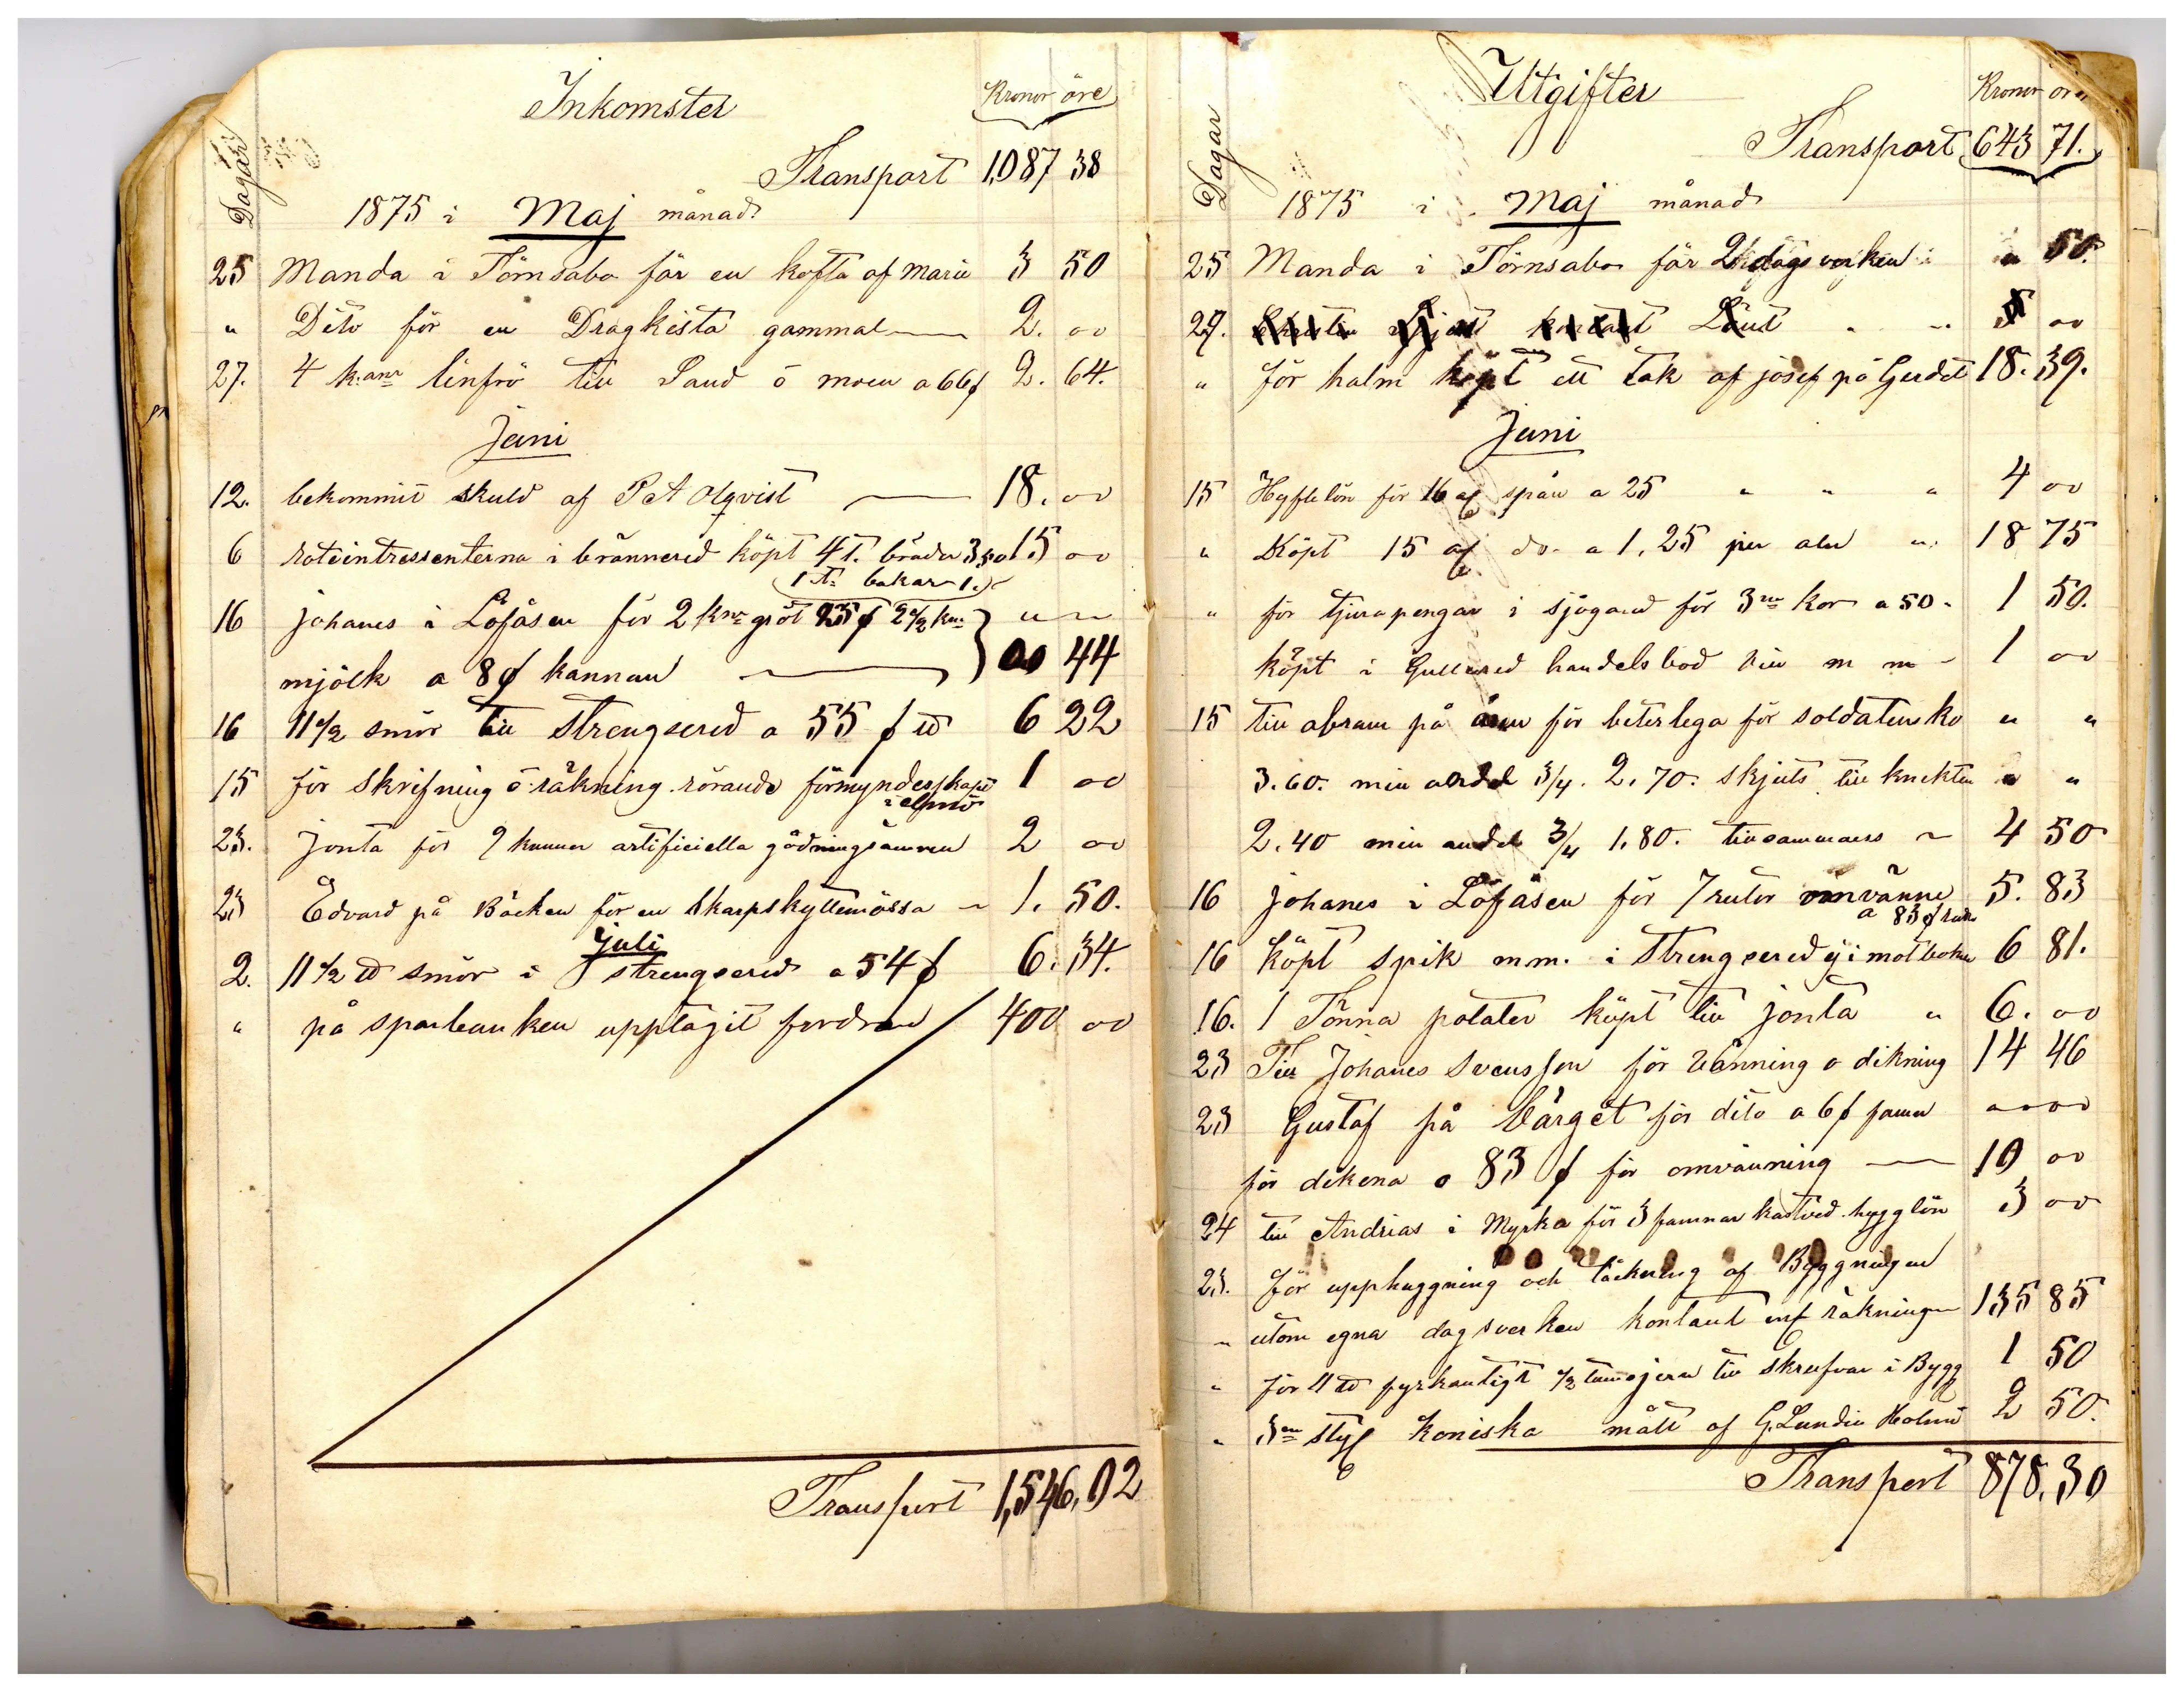 Inkomster
Kronor öre
Dagar
Transport 1,087 38
1875 i Maj månad
25 Manda i Törnsabo för en kofta af marie 3 50
" Dito för en Dragkista gammal 2. 00
27. 4 k:anr linfrö till Sand ö moen a 66 2. 64.
Juni
12. bekommit skuld af P A Olqvist 18. 00
6 roteintressenterna i brännered köpt 4 T. bräder 3,50 15 00
1 T: bakar 1.
16 johanes i Löfåsen för 2 knr gröt 25 2 1/2 knr " "
mjölk a 8 kannan 00 44
16 11 1/2 smör till Strengsered a 55 6 22
15 för skrifning ö räkning rörande förmynderskapet 1 00
23. jonta för 2 kannor artificiella gödningsämnen 2 00
23 Edvard på Bäcken för en skarpskyttemössa 1. 50.
juli
2. 11 1/2 smör i strengsered a 54 6. 34.
" på sparbanken upptagit fordran 400 00
Transport 1,546,02
Utgifter
Kronor öre
Dagar
Transport 643 71.
1875 i Maj månad
25 Manda i Törnsabo för 2 dagsverken " 50.
29. 00
" för halm köpt ett tak af josef på Gerdet 18. 39.
Juni
15 Hyflelön för 16 spån a 25 " " " 4 00
" Köpt 15 do a 1,25 per aln " 18 75
" för tjurapengar i sjögared för 3ne kor a 50 1 50.
köpt i Gullered handelsbod vin m m 1 00
15 till abram på för beterlega för soldatens ko " "
3.60. min andel 3/4. 2.70. skjuts till knekten " "
2.40 min andel 3/4 1.80. tillsammans 4 50
16 johanes i Löfåsen för 7 rutor omvänne 5. 83
a 83
16 köpt spik m m. i Strengsered ej i motboken 6 81.
16. 1 Tönna potater köpt till jonta " 6. 00
23 Till Johanes Svensson för vänning o dikning 14 46
23 Gustaf på bärget för dito a 6 famn
för dikena o 83 för omvänning 10 00
24 till Andrias i Myrka för 3 famnar kastved hygglön 3 00
25. för upphuggning och täckning af Byggningen
" utom egna dagsverken kontant enl räkningen 135 85
" för fyrkantigt 1/2 tumsjern till skrufvar i Bygg 1 50
" 3ne koniska mått af G. Lundin Holmö 2 50.
Transport 878.30